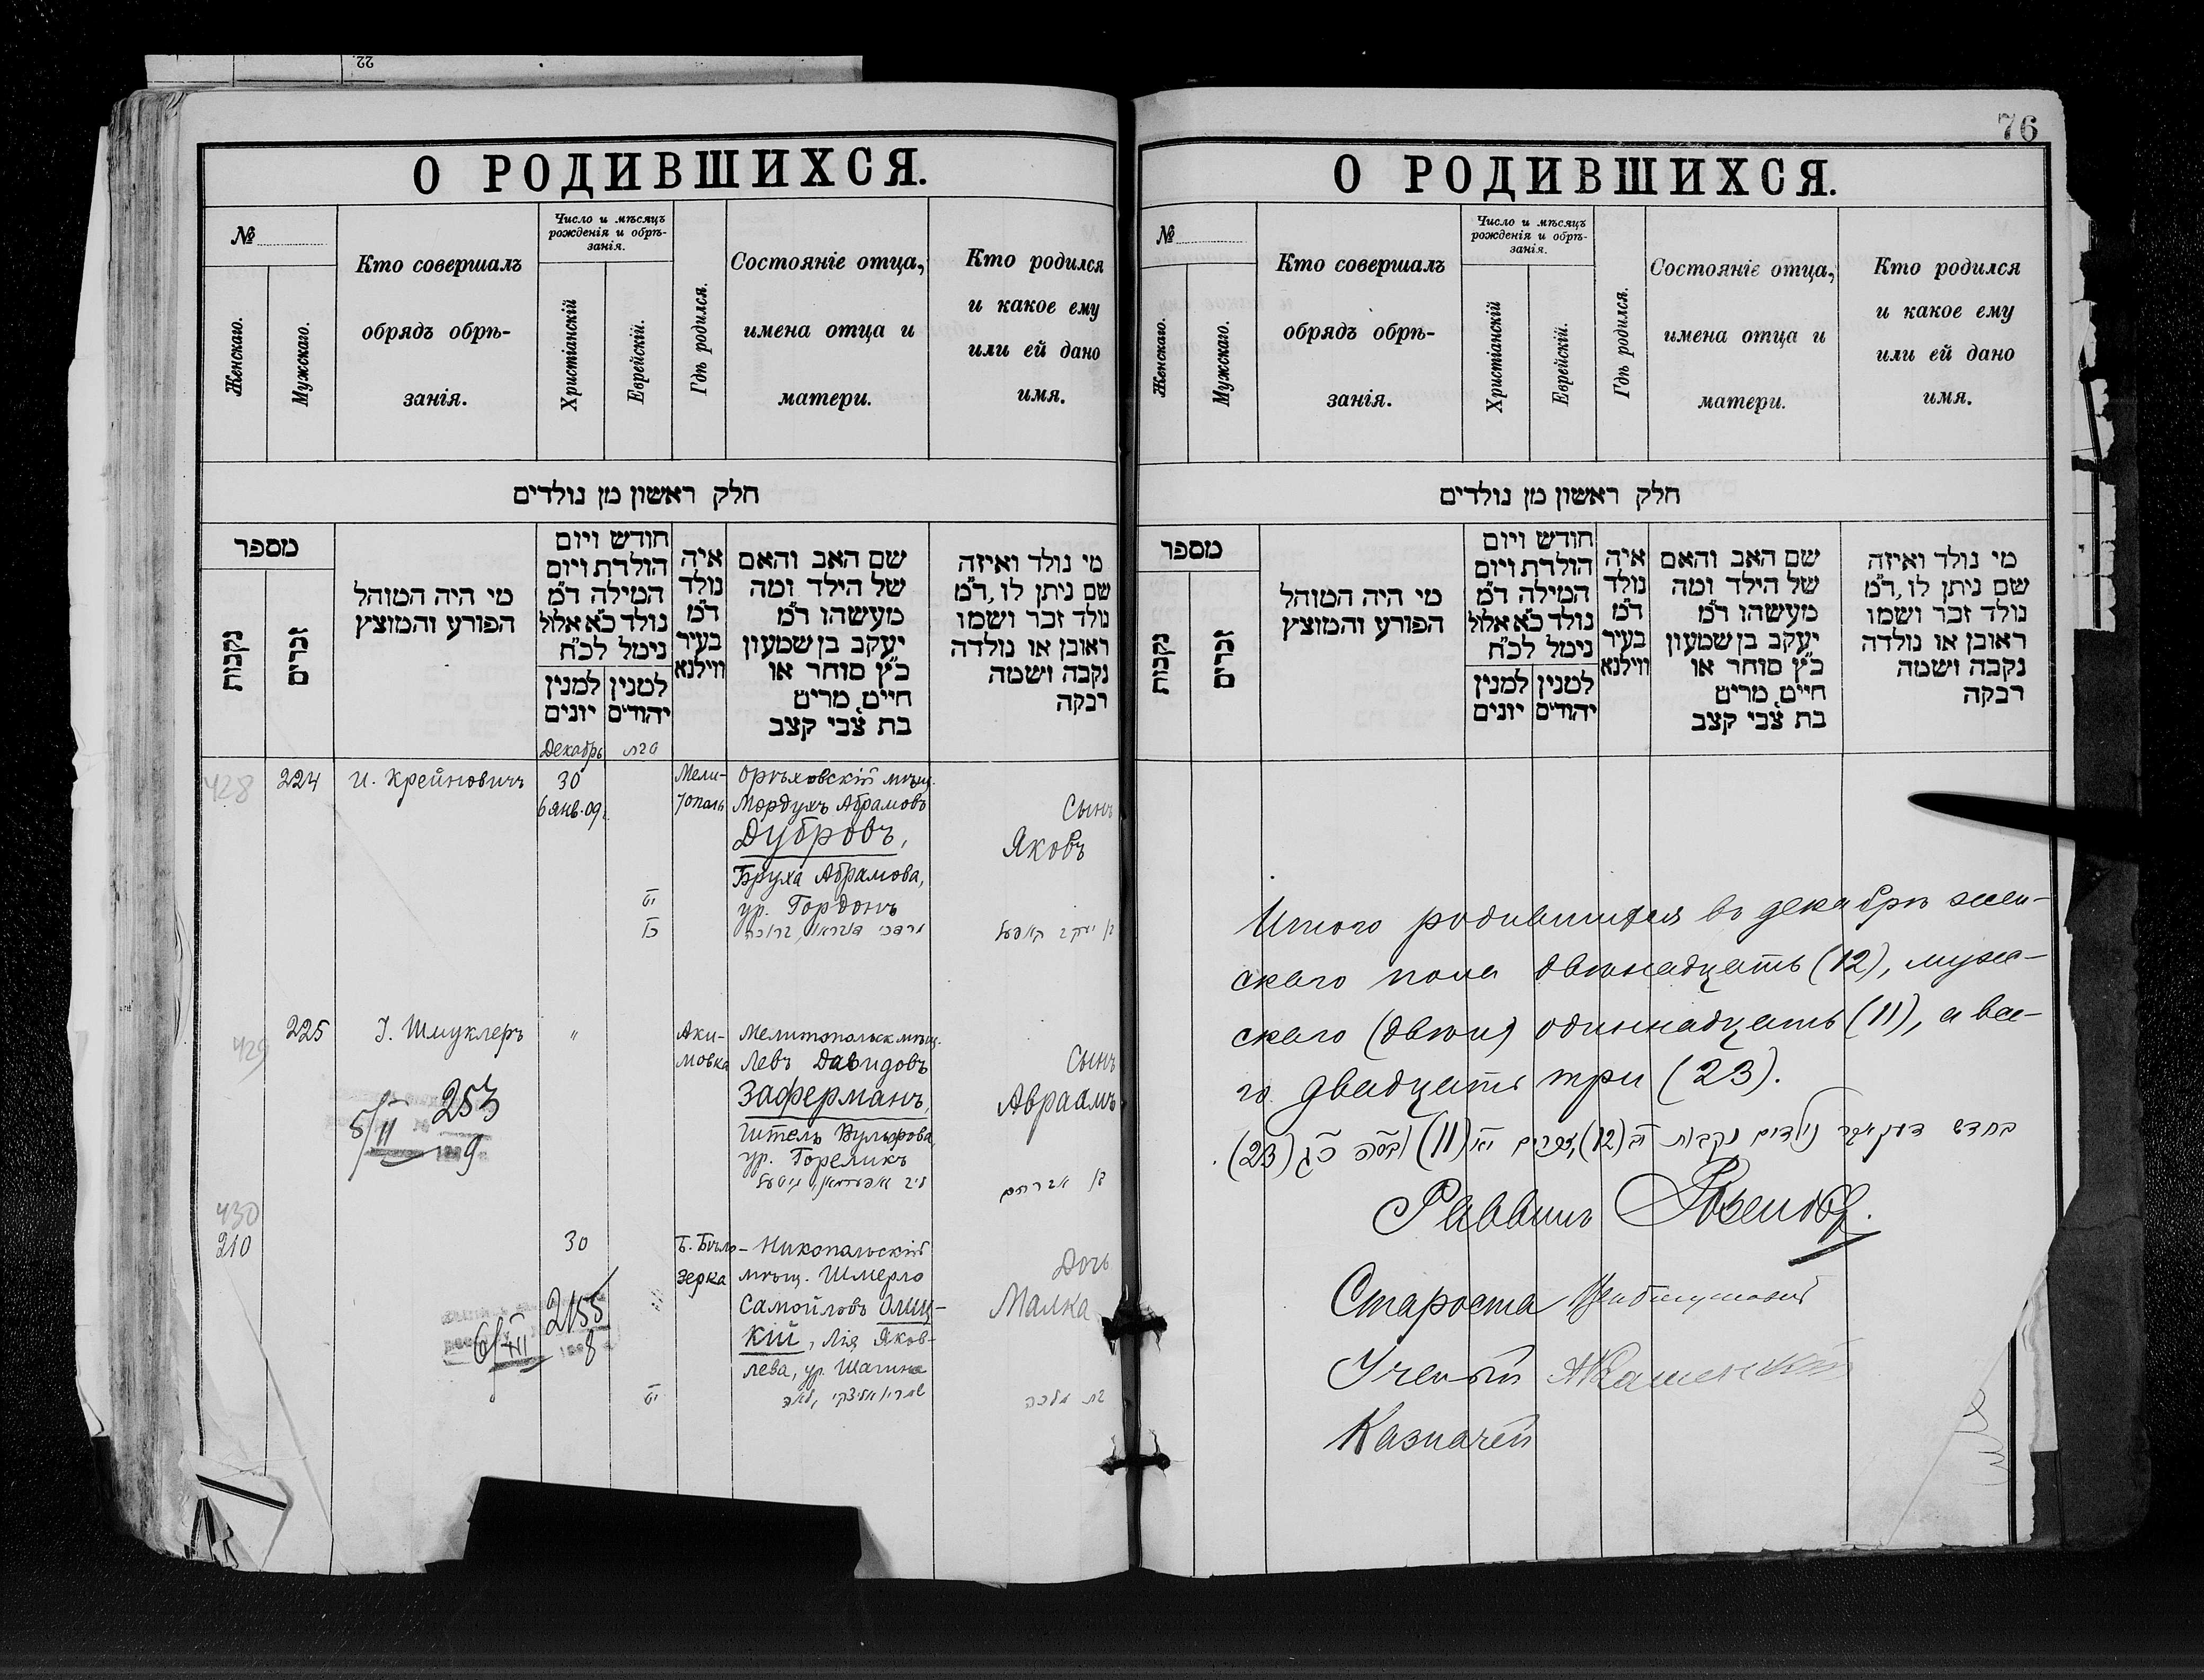 22
О РОДИВШИХСЯ.
№
Женскаго.
Мужскаго.
Кто совершалъ
обрядъ обрѣ-
занія.
Число и мѣсяцъ
рожденія и обрѣ-
занія.
Христіанскій
Еврейскій.
Гдѣ родился.
Состояніе отца,
имена отца и
матери.
Кто родился
и какое ему
или ей дано
имя.
חלק ראשון מן נולדים
מספר
נקבות
זכרים
מי היה המוהל
הפורע והמוצץ
חודש ויום
הולדת ויום
המילה ד״מ
נולד כ״א אלול
נימל לכ״ח
למנין
יונים
למנין
יהודים
איה
נולד
ד״מ
בעיר
ווילנא
שם האב והאם
של הילד ומה
מעשהו ד״מ
יעקב בן שמעון
כ״ץ סוחר או
חייט, מרים
בת צבי קצב
מי נולד ואיזה
שם ניתן לו, ד״מ
נולד זכר ושמו
ראובן או נולדה
נקבה ושמה
רבקה
Декабрь
טבת
428
224
И. Крейновичъ
30
6 янв. 09 г.
Мели-
тополь
Орѣховскій мѣщ.
Мордухъ Абрамовъ
Дубровъ,
Бруха Абрамова,
ур. Гордонъ
Сынъ
Яковъ
429
225
I. Шмуклеръ
"
Аки-
мовка
Мелитопольск мѣщ.
Левъ Давидовъ
Заферманъ,
ур. Гореликъ
Сынъ
Авраамъ
בן אברהם
253
9
430
210
30
Б. Бѣло-
зерка
Никопольскій
мѣщ. Шмерло
Самойловъ Олиц-
кій, Лія Яков-
лева, ур. Шагина
Дочь
Малка
בת מלכה
2155
8
76
О РОДИВШИХСЯ.
№
Женскаго.
Мужскаго.
Кто совершалъ
обрядъ обрѣ-
занія.
Число и мѣсяцъ
рожденія и обрѣ-
занія.
Христіанскій
Еврейскій.
Гдѣ родился.
Состояніе отца,
имена отца и
матери.
Кто родился
и какое ему
или ей дано
имя.
חלק ראשון מן נולדים
מספר
נקבות
זכרים
מי היה המוהל
הפורע והמוצץ
חודש ויום
הולדת ויום
המילה ד״מ
נולד כ״א אלול
נימל לכ״ח
למנין
יונים
למנין
יהודים
איה
נולד
ד״מ
בעיר
ווילנא
שם האב והאם
של הילד ומה
מעשהו ד״מ
יעקב בן שמעון
כ״ץ סוחר או
חייט, מרים
בת צבי קצב
מי נולד ואיזה
שם ניתן לו, ד״מ
נולד זכר ושמו
ראובן או נולדה
נקבה ושמה
רבקה
Итого родившихся въ декабрѣ жен-
скаго пола двѣнадцать (12), муж-
скаго одиннадцать (11), а все-
го двадцать три (23).
בחדש דעקאבר נולדים נקבות י״ב (12), זכרים י״א (11) ובס״ה כ״ג (23).
Раввинъ
Староста
Ученый
Казначей